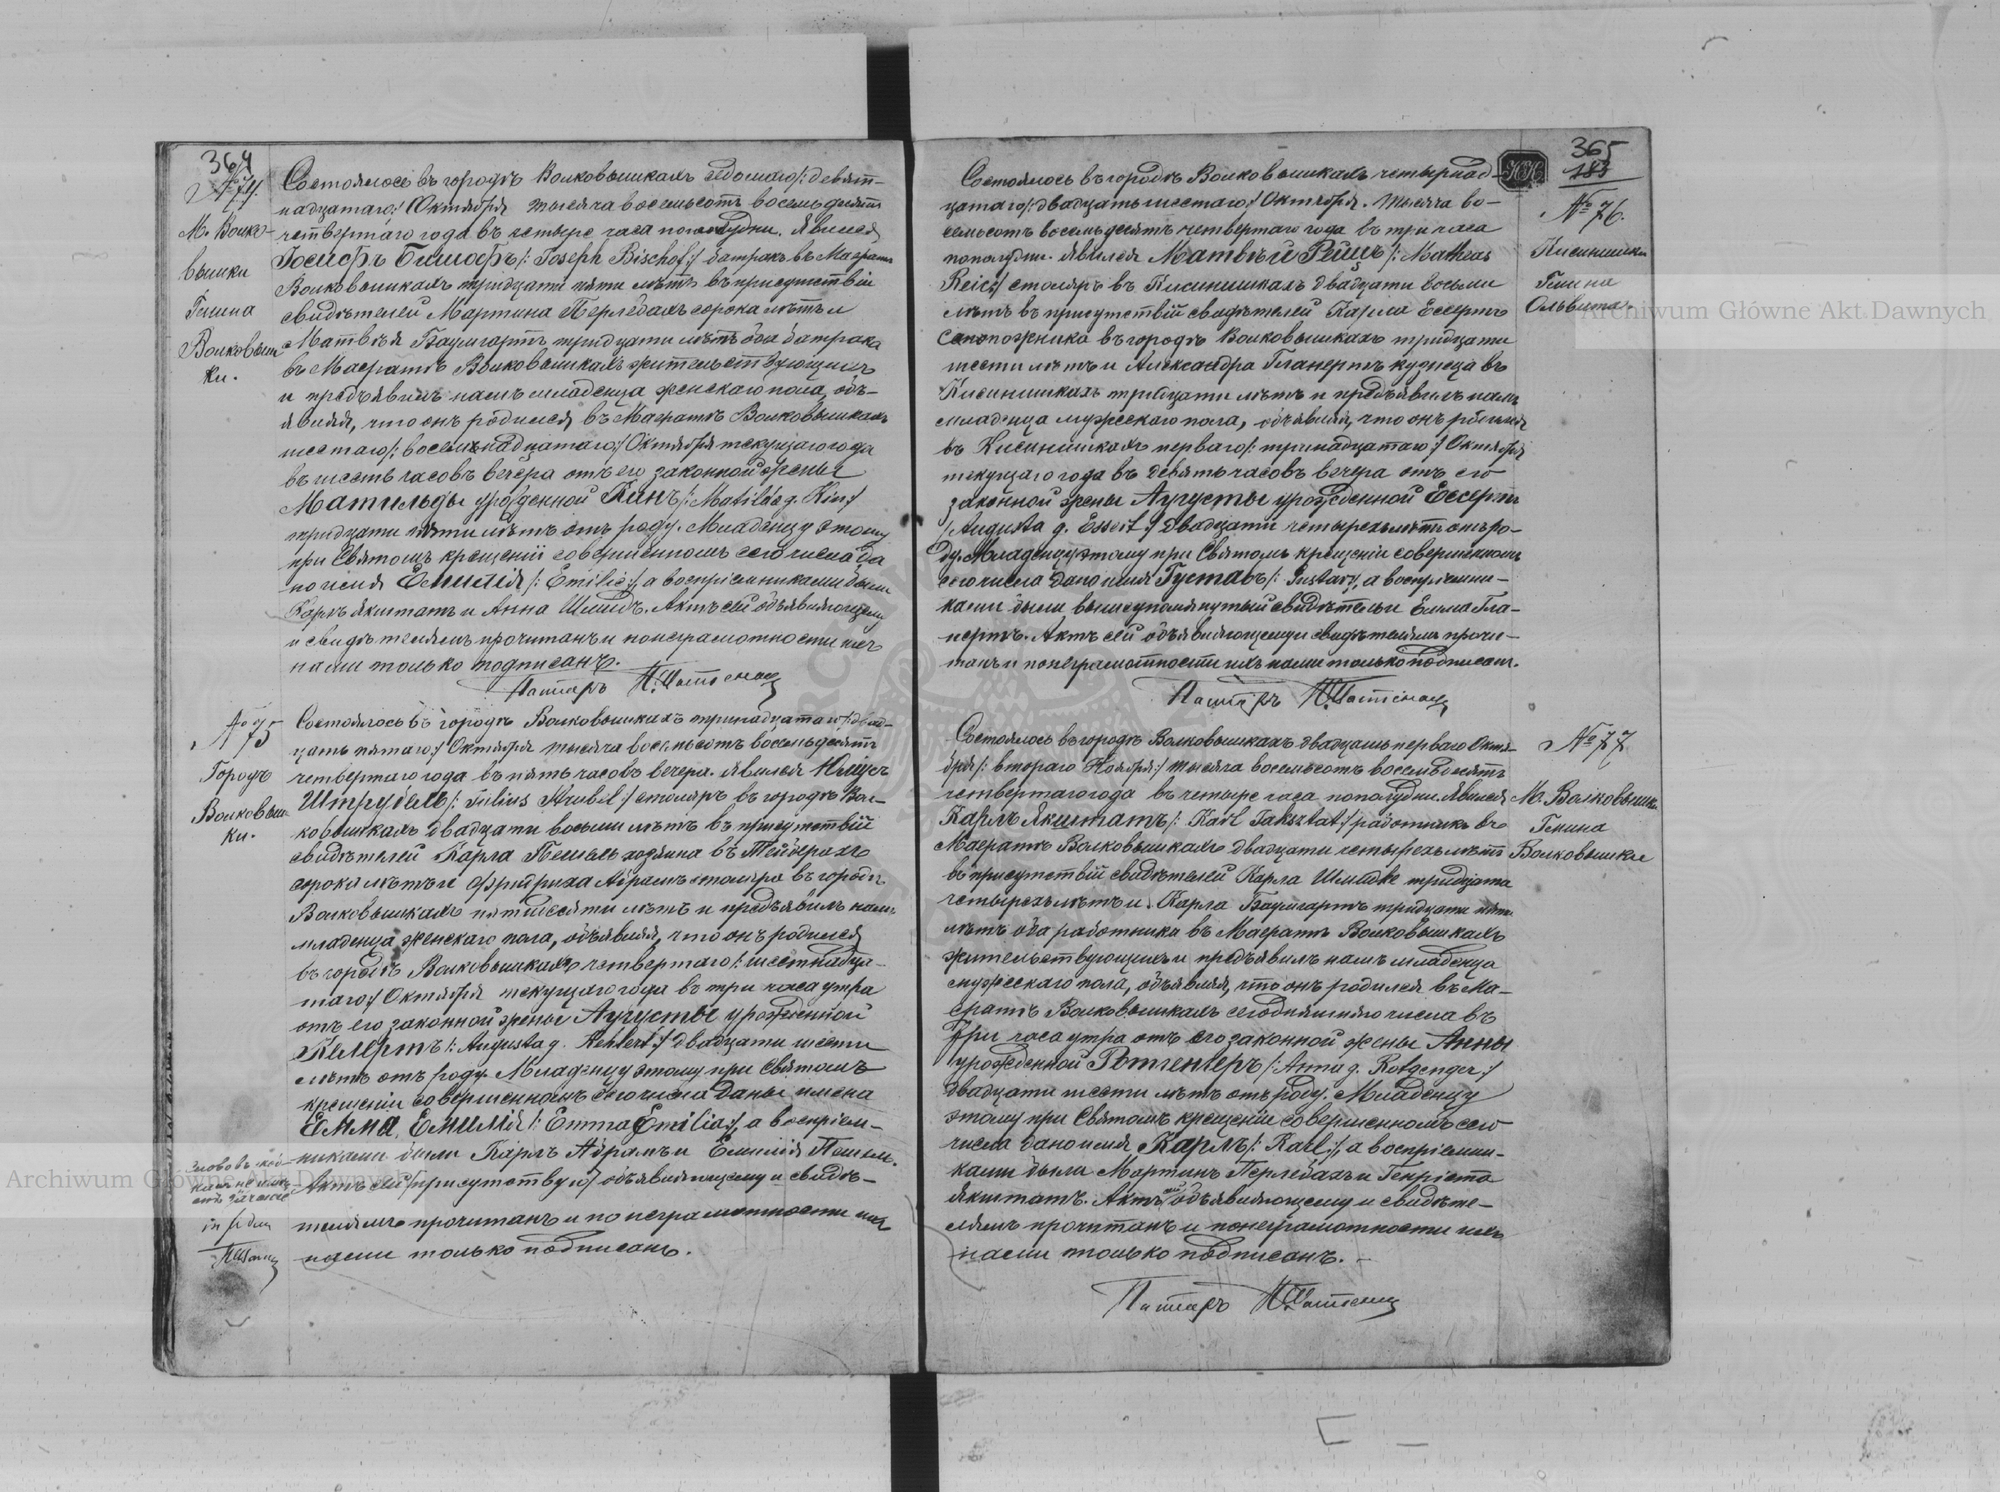 364
№ 74.
М. Волко-
вышки
Гмина
Волковыш-
ки.
Состоялось въ городѣ Волковышкахъ седьмаго /: девят-
надцатаго :/ Октября тысяча восемьсотъ восемьдесятъ
четвертаго года въ четыре часа пополудни. Явился
Іосифъ Бишофъ /: Joseph Bischof :/ батракъ въ Маератѣ
Волковышкахъ тридцати пяти лѣтъ въ присутствіи
свидѣтелей Мартина Перлебахъ сорока лѣтъ и
Матвѣя Баумгартъ тридцати лѣтъ оба батрака
въ Маератѣ Волковышкахъ жительствующихъ
и предъявилъ намъ младенца женскаго пола, объ-
являя, что онъ родился въ Маератѣ Волковышкахъ
шестаго /: восемнадцатаго :/ Октября текущаго года
въ шесть часовъ вечера отъ его законной жены
Матильды урожденной Кинъ /: Matilde g. Kin :/
тридцати пяти лѣтъ отъ роду. Младенцу этому
при Святомъ крещеніи совершенномъ сего числа да
но имя Емилія /: Emilie :/, а воспріемниками были
Карлъ Якштатъ и Анна Шмидъ. Актъ сей объявляющему
и свидѣтелямъ прочитанъ и по неграмотности ихъ
нами только подписанъ.
Пасторъ
№ 75
Городъ
Волковыш-
ки.
Состоялось въ городѣ Волковышкахъ тринадцатаго /: двад-
цать пятаго :/ Октября тысяча восемьсотъ восемьдесятъ
четвертаго года въ пять часовъ вечера. Явился Юліусъ
Штрубель /: Julius Strubil :/ столяръ въ городѣ Вол-
ковышкахъ двадцати восьми лѣтъ въ присутствіи
свидѣтелей Карла хозяина въ
сорока лѣтъ и Фридриха Абрамъ столяра въ городѣ
Волковышкахъ пятидесяти лѣтъ и предъявилъ намъ
младенца женскаго пола, объявляя, что онъ родился
въ городѣ Волковышкахъ четвертаго /: шестнадца-
таго :/ Октября текущаго года въ три часа утра
отъ его законной жены Аугусты урожденной
Келертъ /: Augusta g. Kehlert :/ двадцати шести
лѣтъ отъ роду. Младенцу этому при Святомъ
крещеніи совершенномъ сего числа даны имена
Емма, Емилія /: Emma Emilia :/, а воспріем-
никами были Карлъ Абрамъ и Емилія
Актъ сей /присутствую/ объявляющему и свидѣ-
телямъ прочитанъ и по неграмотности ихъ
нами только подписанъ.
in fidem
365
183
№ 76.
Писинишки
Гмина
Ольвита.
Состоялось въ городѣ Волковышкахъ четырнад-
цатаго /: двадцать шестаго :/ Октября. Тысяча во-
семьсотъ восемьдесятъ четвертаго года въ три часа
пополудни. Явился Матвѣй Рейцъ /: Matheas
Reic :/ столяръ въ Писинишкахъ двадцати восьми
лѣтъ въ присутствіи свидѣтелей Карла Есертъ
сапожника въ городѣ Волковышкахъ тридцати
шести лѣтъ и Александра Гланертъ кузнеца въ
Писинишкахъ тридцати лѣтъ и предъявилъ намъ
младенца мужескаго пола, объявляя, что онъ родился
въ Писинишкахъ перваго /: тринадцатаго :/ Октября
текущаго года въ девять часовъ вечера отъ его
законной жены Аугусты урожденной Ессертъ
/: Augusta g. Essert :/ двадцати четырехъ лѣтъ отъ ро-
ду. Младенцу этому при Святомъ крещеніи совершенномъ
сего числа дано имя Густавъ /: Gustav :/, а воспріемни-
ками были вышеупомянутый свидѣтель и Емма Гла-
нертъ. Актъ сей объявляющему и свидѣтелямъ прочи-
танъ и по неграмотности ихъ нами только подписанъ.
Пасторъ
№ 77
М. Волковышки
Гмина
Волковышки
Состоялось въ городѣ Волковышкахъ двадцать перваго Октя-
бря /: втораго Ноября :/ тысяча восемьсотъ восемьдесятъ
четвертаго года въ четыре часа пополудни. Явился
Карлъ Якштатъ /: Karl Jaksztat :/ работникъ въ
Маератѣ Волковышкахъ двадцати четырехъ лѣтъ
въ присутствіи свидѣтелей Карла Шмидке тридцати
четырехъ лѣтъ и Карла Баумгартъ тридцати пяти
лѣтъ оба работники въ Маератѣ Волковышкахъ
жительствующихъ и предъявилъ намъ младенца
мужескаго пола, объявляя, что онъ родился въ Ма-
ератѣ Волковышкахъ сегодняшняго числа въ
три часа утра отъ его законной жены Анны
урожденной Ротгенгеръ /: Anna g. Rotgenger :/
двадцати шести лѣтъ отъ роду. Младенцу
этому при Святомъ крещеніи совершенномъ сего
числа дано имя Карлъ /: Karl :/, а воспріемни-
ками были Мартинъ Перлебахъ и Генріета
Якштатъ. Актъ сей объявляющему и свидѣте-
лямъ прочитанъ и по неграмотности ихъ
нами только подписанъ.
Пасторъ
Archiwum Główne Akt Dawnych
Archiwum Główne Akt Dawnych